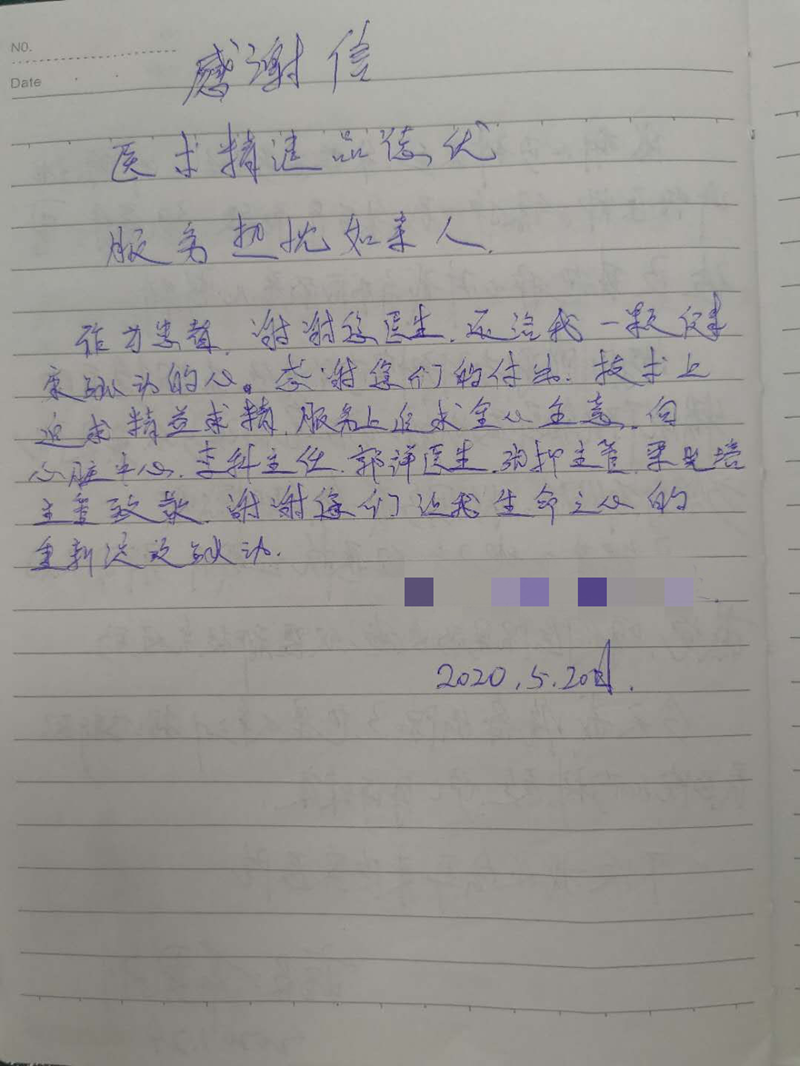 NO.
Date
感谢信
医术精进品德优
服务热忱如亲人.
作为患者,谢谢您医生,还给我一颗健
康跳动的心。感谢您们的付出.技术上
追求精益求精,服务上追求全心全意.向
心脏中心,李科主任,郭详医生,护士
致敬,谢谢您们让我生命之心的
重新跳动.
2020.5.20日.